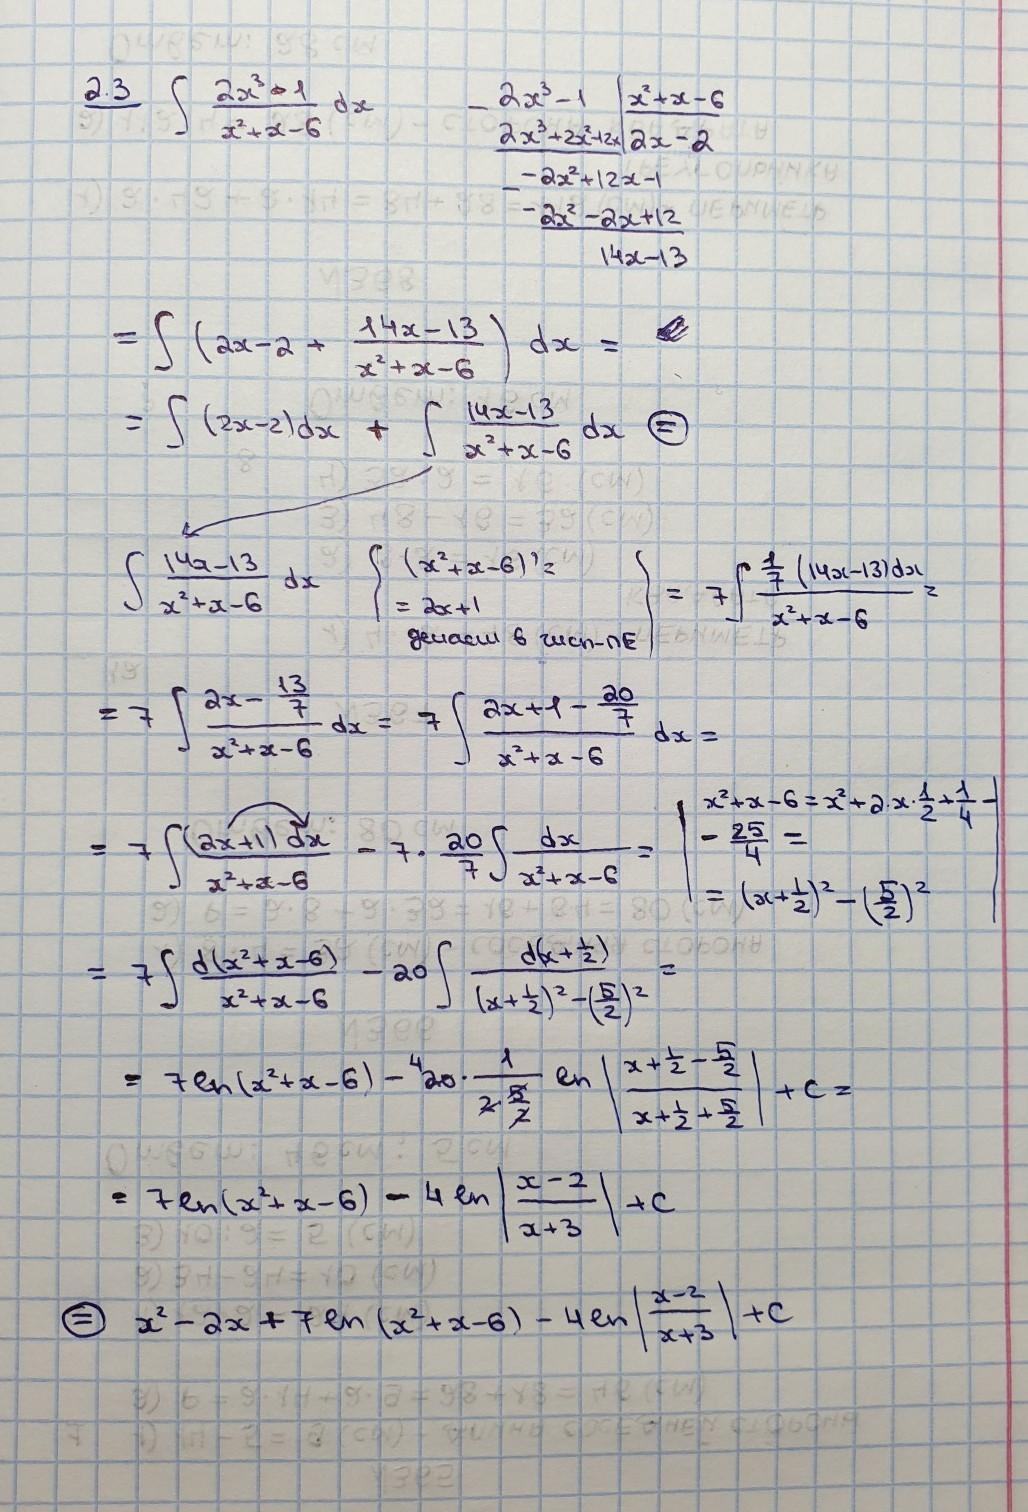 2.3 ∫ (2x³-1)/(x²+x-6) dx
2x³-1 | x²+x-6
2x³+2x²+2x | 2x-2
-2x²+12x-1
-2x²-2x+12
14x-13
= ∫ (2x-2 + (14x-13)/(x²+x-6)) dx =
= ∫ (2x-2)dx + ∫ (14x-13)/(x²+x-6) dx ⊜
∫ (14x-13)/(x²+x-6) dx { (x²+x-6)' = = 2x+1 делаем в числ-ле } = 7 ∫ (1/7 (14x-13)dx)/(x²+x-6) =
= 7 ∫ (2x - 13/7)/(x²+x-6) dx = 7 ∫ (2x+1 - 20/7)/(x²+x-6) dx =
= 7 ∫ ((2x+1) dx)/(x²+x-6) - 7 · 20/7 ∫ dx/(x²+x-6) = | x²+x-6 = x²+2·x·1/2+1/4 -
- 25/4 =
= (x+1/2)² - (5/2)² |
= 7 ∫ d(x²+x-6)/(x²+x-6) - 20 ∫ d(x+1/2)/((x+1/2)² - (5/2)²) =
= 7 ln(x²+x-6) - ⁴20 · 1/(2·5/2) ln |(x+1/2-5/2)/(x+1/2+5/2)| + C =
= 7 ln(x²+x-6) - 4 ln |(x-2)/(x+3)| + C
⊜ x² - 2x + 7 ln (x²+x-6) - 4 ln |(x-2)/(x+3)| + C